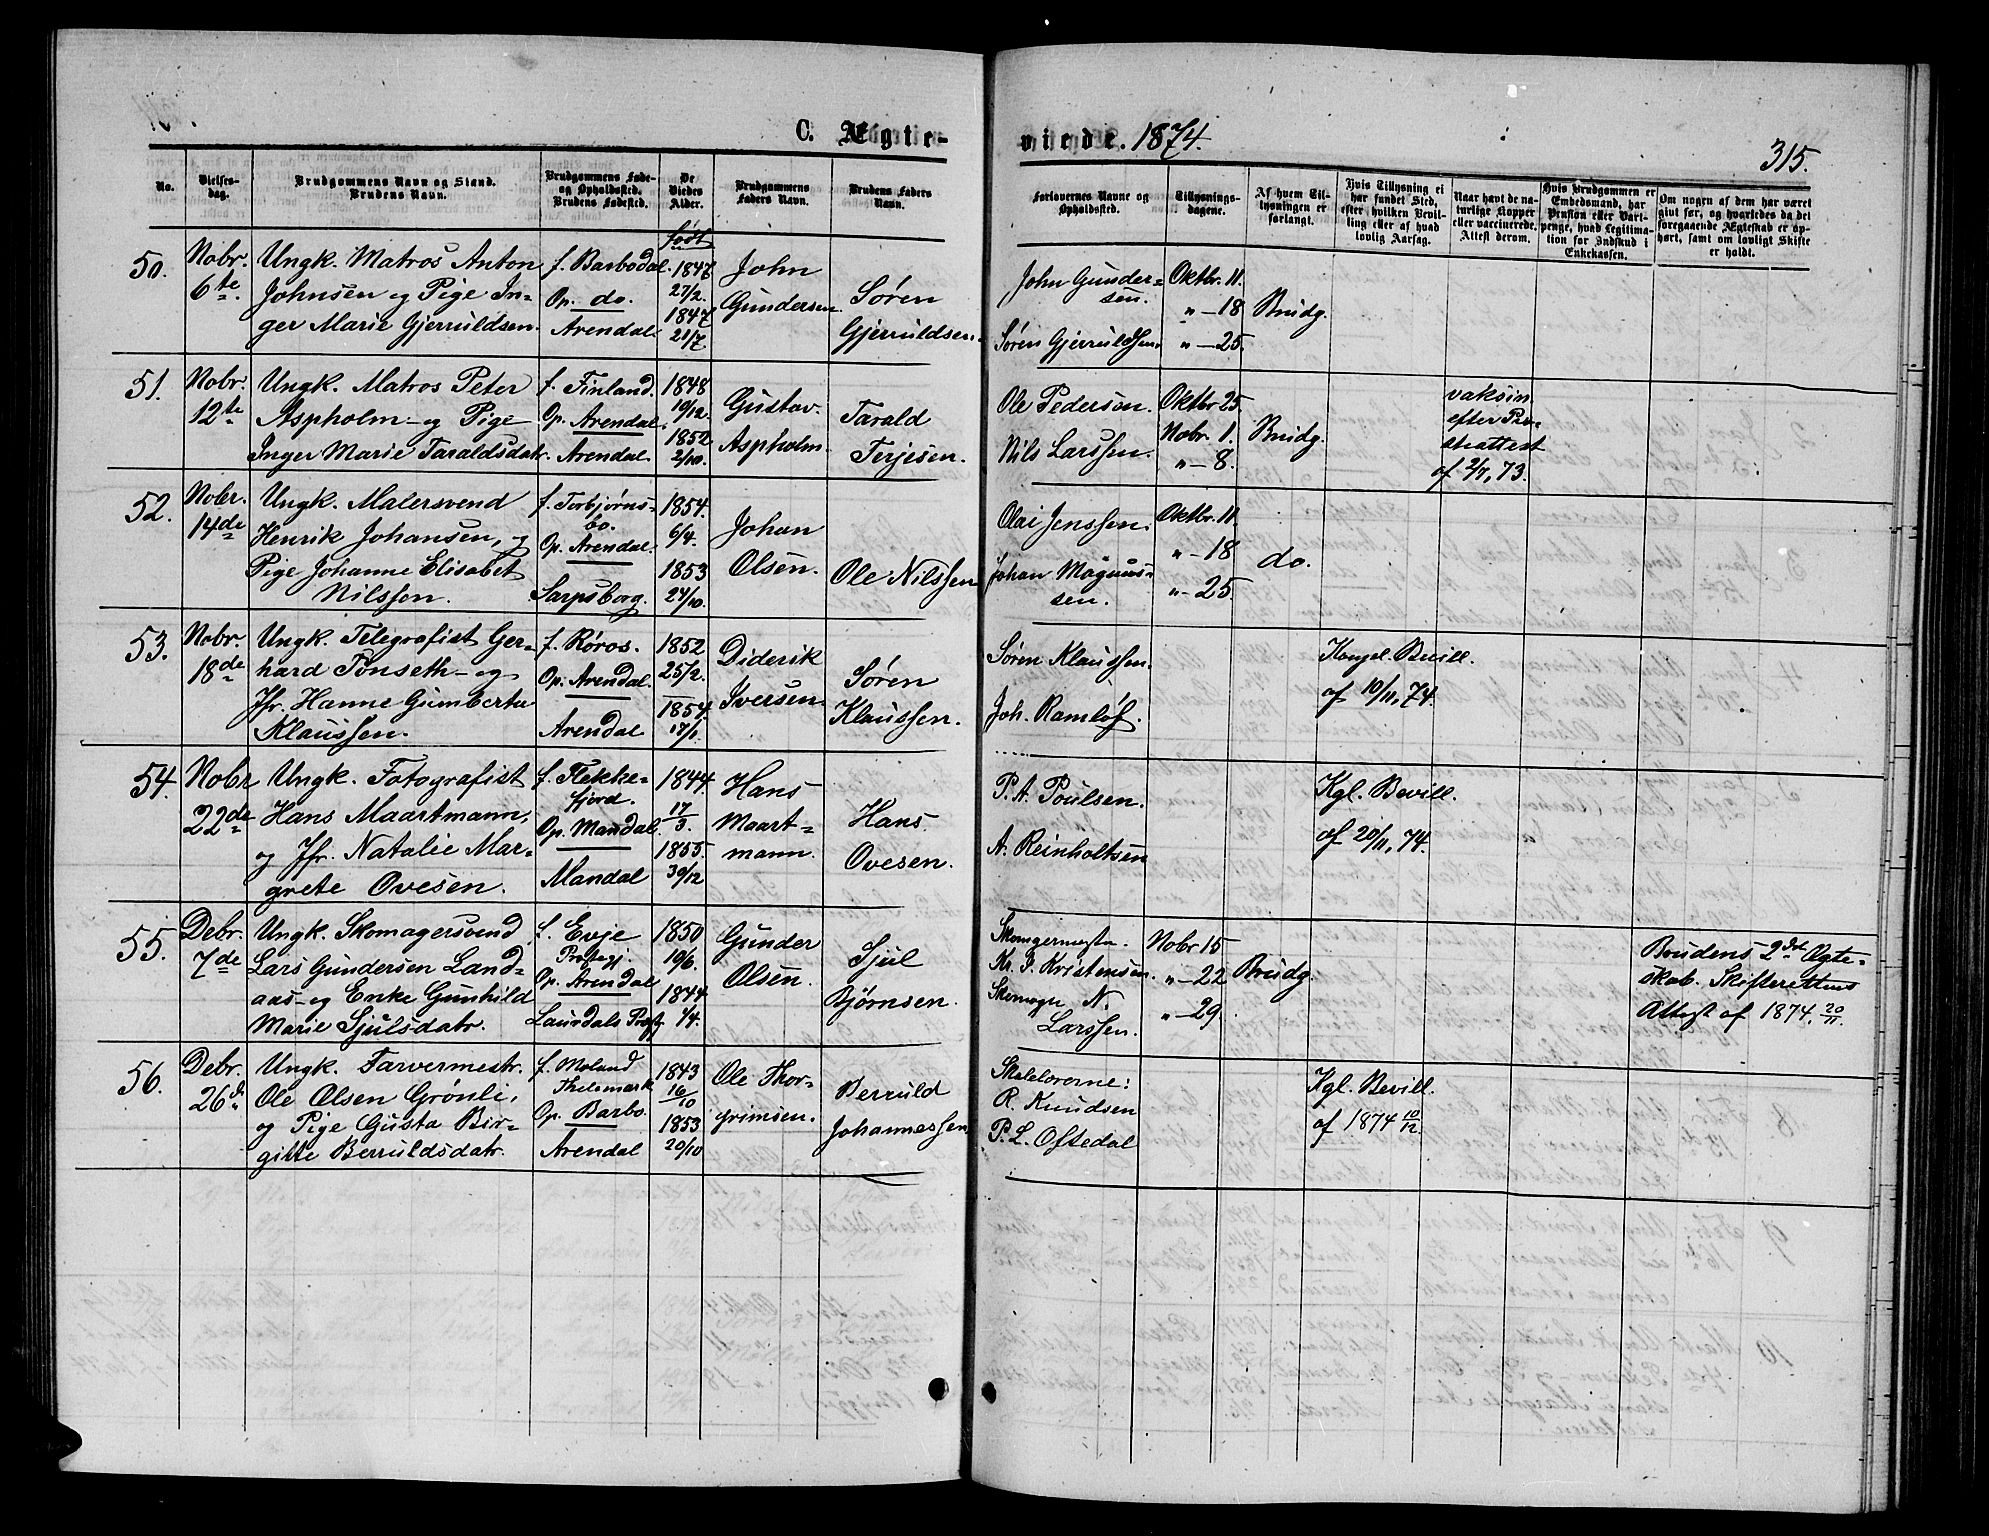 C. Ægte-
viede. 1874.
315.
No.
Vielses-
dag.
Brudgommens Navn og Stand.
Brudens Navn.
Brudgommens Føde-
og Opholdssted.
Brudens Fødested.
De
Viedes
Alder.
Brudgommens
Faders Navn.
Brudens Faders
Navn.
Forlovernes Navne og
Opholdssted.
Tillysnings-
dagene.
Af hvem Til-
lysningen er
forlangt.
Hvis Tillysning ei
har fundet Sted,
efter hvilken Bevil-
ling eller af hvad
lovlig Aarsag.
Naar havt de na-
turlige Kopper
eller vaccinerede.
Attest derom.
Hvis Brudgommen er
Embedsmand, har
Pension eller Vart-
penge, hvad Legitima-
tion for Indskud i
Enkekassen.
Om nogen af dem har været
givt før, og hvorledes da det
foregaaende Ægteskab er op-
hørt, samt om lovligt Skifte
er holdt.
Født
50.
Nobr.
6te
Ungk. Matros Anton
Johnsen og Pige In-
ger Marie Gjerruldsen.
f. Barbodal.
Op. do.
Arendal
1847
27/2.
1847
21/7
John
Gundersen
Søren
Gjerruldsen.
John Gunder-
sen.
Søren Gjerruldsen.
Oktbr. 11.
" - 18
" - 25.
Brudg.
51.
Nobr.
12te
Ungk. Matros Peter
Aspholm og Pige
Inger Marie Taraldsdatr.
f. Finland.
Op. Arendal.
Arendal
1848
19/12.
1852
2/10.
Gustav
Aspholm.
Tarald
Terjesen.
Ole Pedersen.
Nils Larssen.
Oktbr 25.
Nobr. 1.
" - 8.
Brudg.
vaksin.
efter Præ-
steattest
af 2/7, 73.
52.
Nobr.
14de
Ungk. Malersvend
Henrik Johansen, og
Pige Johanne Elisabet
Nilssen.
f. Torbjørns-
bo.
Op. Arendal.
Sarpsborg.
1854.
6/4.
1853
24/10.
Johan
Olsen.
Ole Nilssen
Olai Jenssen.
Johan Magnus-
sen.
Oktbr. 11.
" - 18
" - 25.
do.
53.
Nobr.
18de
Ungk. Telegrafist Ger-
hard Tønseth og
Jfr. Hanne Gumberta
Klaussen.
f. Røros.
Op. Arendal.
Arendal
1852
25/2.
1854.
17/1
Diderik
Iversen
Søren
Klaussen.
Søren Klaussen.
Joh. Ramløf.
Kongel. Bevill.
af 10/11, 74.
54.
Nobr
22de
Ungk. Fotografist
Hans Maartmann,
og Jfr. Natalie Mar-
grete Ovesen.
f. Flekke-
fjord.
Op. Mandal.
Mandal
1844.
17/3.
1855.
30/12
Hans
Maart-
mann.
Hans
Ovesen.
P. A. Poulsen.
A. Reinholtsen
Kgl. Bevill.
af 20/11, 74.
55.
Debr.
7de
Ungk. Skomagersvend
Lars Gundersen Land-
aas og Enke Gunhild
Marie Sjulsdatr.
f. Evje
Præstegj.
Op. Arendal
Laurdals Præstgj
1850
19/6.
1844
1/4.
Gunder
Olsen.
Sjul
Bjørnsen.
Skomagermester
Kr. P. Kristensen.
Skomager N.
Larssen.
Nobr 15
" - 22
" - 29.
Brudg.
Brudens 2det Ægte-
skab. Skifterettens
Attest af 1874, 20/11.
56.
Debr.
26de
Ungk. Farvermestr.
Ole Olsen Grønli,
og Pige Gusta Bir-
gitte Berruldsdatr.
f. Moland
Thelemark
Op. Barbo.
Arendal
1843
16/10
1853
20/10
Ole Thor-
grimsen.
Berruld
Johannessen
Skolelærerne:
R. Knudsen
P. L. Oftedal
Kgl. Bevill.
af 1874 10/12.